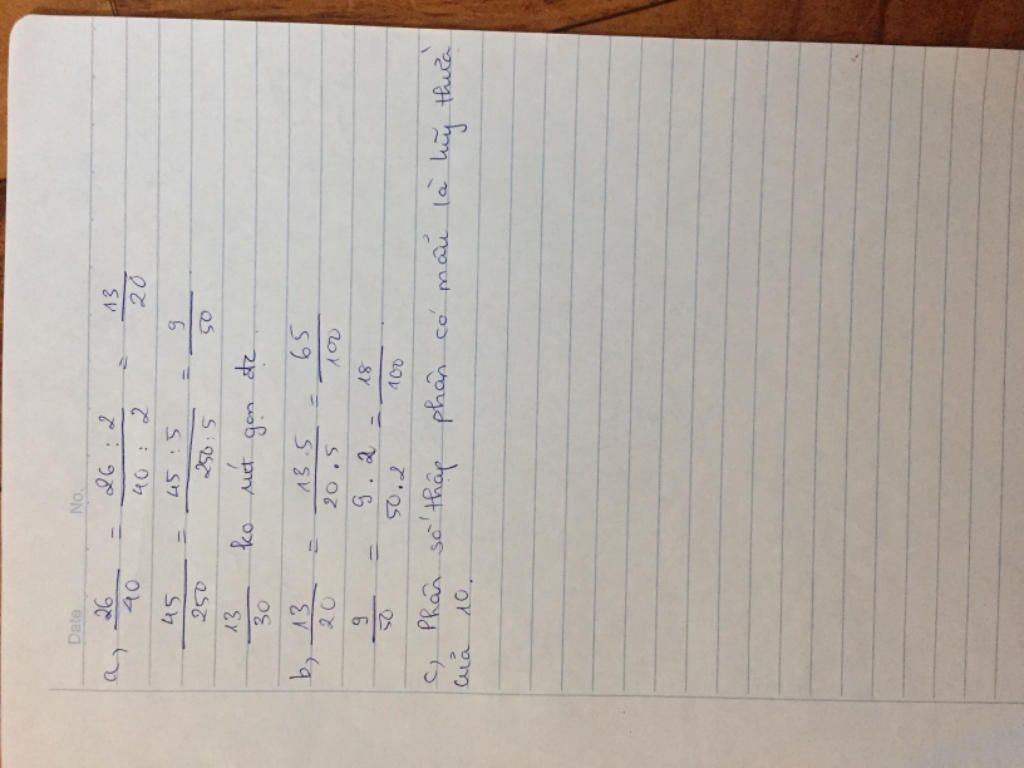 Date No.
a, 26/40 = 26 : 2/40 : 2 = 13/20
45/250 = 45 : 5/250 : 5 = 9/50
13/30 ko rút gọn đc
b, 13/20 = 13 . 5/20 . 5 = 65/100
9/50 = 9 . 2/50 . 2 = 18/100
c, Phân số thập phân có mẫu là lũy thừa
của 10.